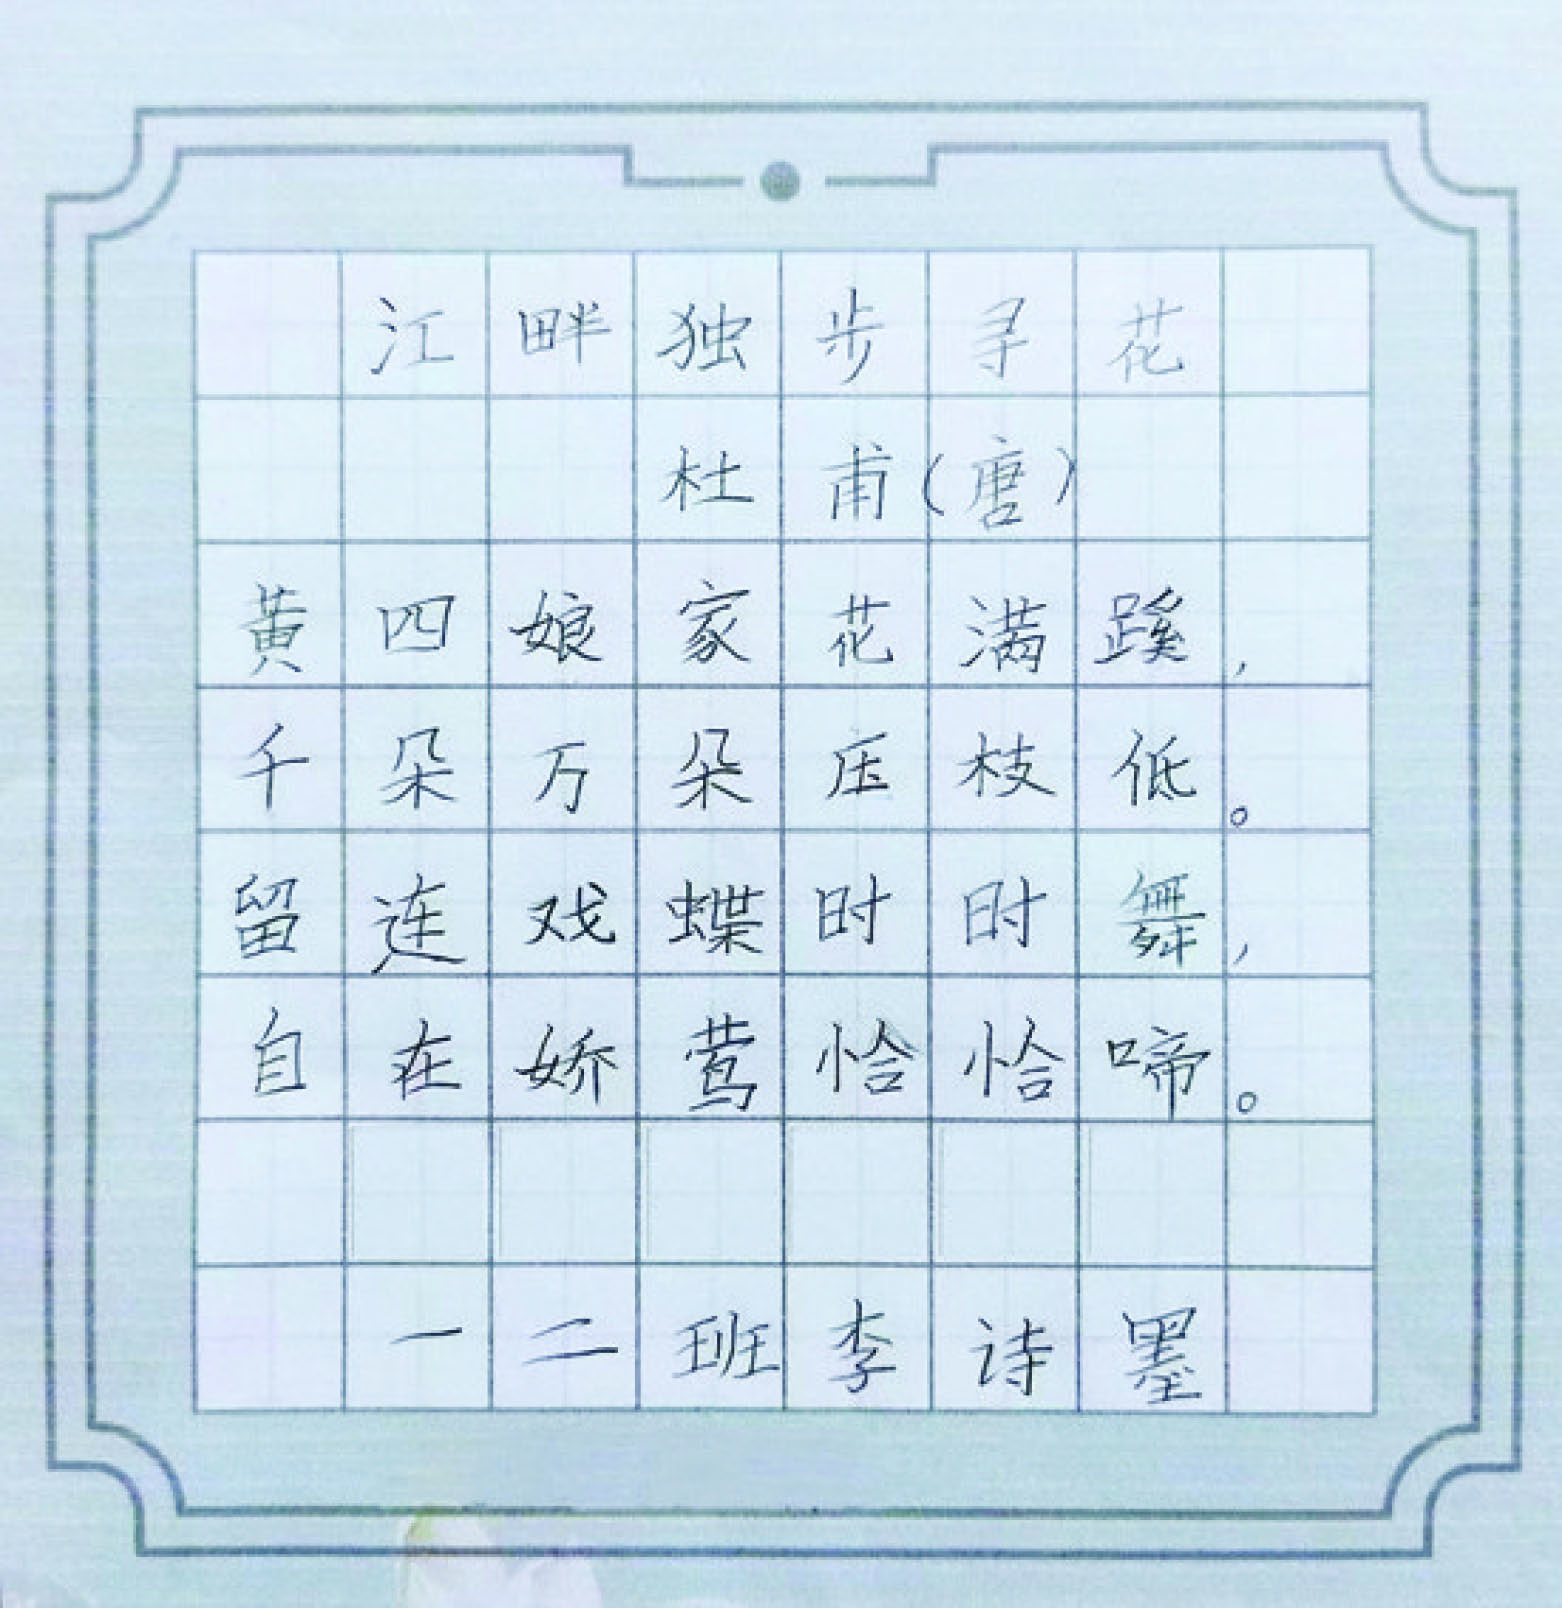 江畔独步寻花
杜甫(唐)
黄四娘家花满蹊,
千朵万朵压枝低。
留连戏蝶时时舞,
自在娇莺恰恰啼。
一二班李诗墨